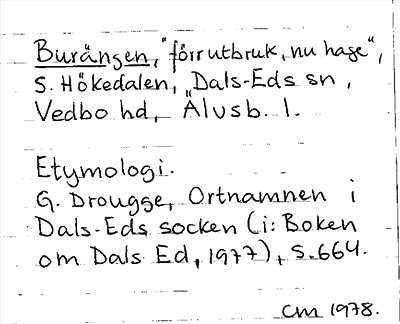 Burängen, "förr utbruk, nu hage",
S. Hökedalen, Dals-Eds sn,
Vedbo hd, Älvsb. l.
Etymologi.
G. Drougge, Ortnamnen i
Dals-Eds socken (i: Boken
om Dals Ed, 1977), s. 664.
CM 1978.